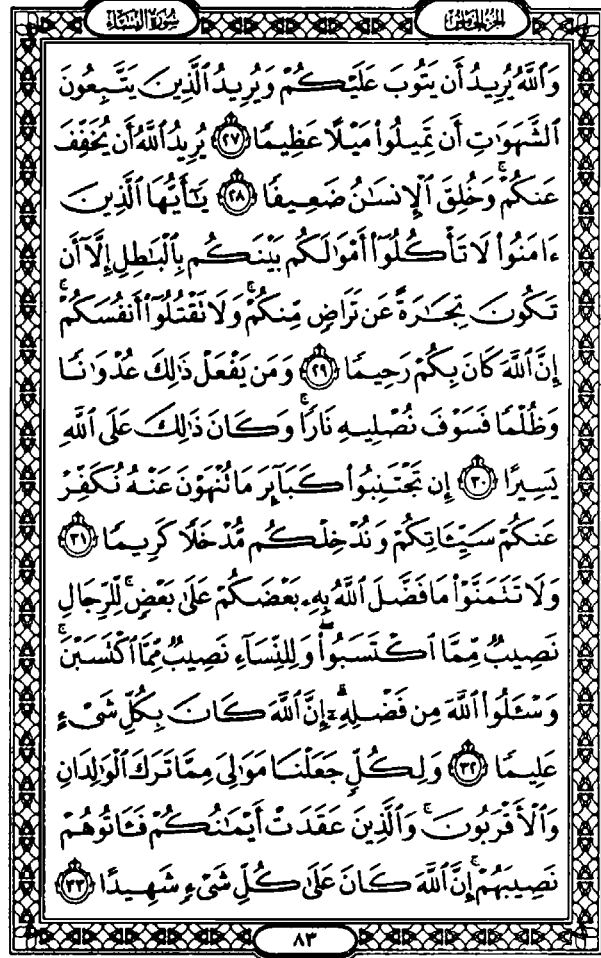 الجزء الخامس
سورة النساء
وَٱللَّهُ يُرِيدُ أَن يَتُوبَ عَلَيْكُمْ وَيُرِيدُ ٱلَّذِينَ يَتَّبِعُونَ
ٱلشَّهَوَٰتِ أَن تَمِيلُوا۟ مَيْلًا عَظِيمًا ﴿٢٧﴾ يُرِيدُ ٱللَّهُ أَن يُخَفِّفَ
عَنكُمْ ۚ وَخُلِقَ ٱلْإِنسَٰنُ ضَعِيفًا ﴿٢٨﴾ يَٰٓأَيُّهَا ٱلَّذِينَ
ءَامَنُوا۟ لَا تَأْكُلُوٓا۟ أَمْوَٰلَكُم بَيْنَكُم بِٱلْبَٰطِلِ إِلَّآ أَن
تَكُونَ تِجَٰرَةً عَن تَرَاضٍ مِّنكُمْ ۚ وَلَا تَقْتُلُوٓا۟ أَنفُسَكُمْ ۚ
إِنَّ ٱللَّهَ كَانَ بِكُمْ رَحِيمًا ﴿٢٩﴾ وَمَن يَفْعَلْ ذَٰلِكَ عُدْوَٰنًا
وَظُلْمًا فَسَوْفَ نُصْلِيهِ نَارًا ۚ وَكَانَ ذَٰلِكَ عَلَى ٱللَّهِ
يَسِيرًا ﴿٣٠﴾ إِن تَجْتَنِبُوا۟ كَبَآئِرَ مَا تُنْهَوْنَ عَنْهُ نُكَفِّرْ
عَنكُمْ سَيِّـَٔاتِكُمْ وَنُدْخِلْكُم مُّدْخَلًا كَرِيمًا ﴿٣١﴾
وَلَا تَتَمَنَّوْا۟ مَا فَضَّلَ ٱللَّهُ بِهِۦ بَعْضَكُمْ عَلَىٰ بَعْضٍ ۚ لِّلرِّجَالِ
نَصِيبٌ مِّمَّا ٱكْتَسَبُوا۟ ۖ وَلِلنِّسَآءِ نَصِيبٌ مِّمَّا ٱكْتَسَبْنَ ۚ
وَسْـَٔلُوا۟ ٱللَّهَ مِن فَضْلِهِۦٓ ۗ إِنَّ ٱللَّهَ كَانَ بِكُلِّ شَىْءٍ
عَلِيمًا ﴿٣٢﴾ وَلِكُلٍّ جَعَلْنَا مَوَٰلِىَ مِمَّا تَرَكَ ٱلْوَٰلِدَانِ
وَٱلْأَقْرَبُونَ ۚ وَٱلَّذِينَ عَقَدَتْ أَيْمَٰنُكُمْ فَـَٔاتُوهُمْ
نَصِيبَهُمْ ۚ إِنَّ ٱللَّهَ كَانَ عَلَىٰ كُلِّ شَىْءٍ شَهِيدًا ﴿٣٣﴾
٨٣